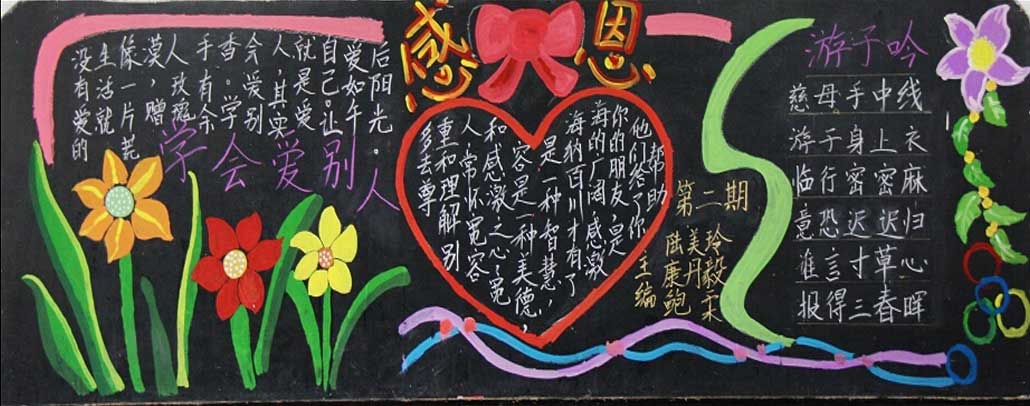 感恩
没有爱的
生活就
像一片荒
漠，赠
人玫瑰
手有余
香。学
会爱别
人，其实
就是爱
自己。让
爱如午
后阳光。
学会爱别人
多去尊
重和理解别
人，常怀宽容
和感激之心，宽
容是一种美德，
是一种智慧，
海纳百川才有了
海的广阔，感激
你的朋友，是
他们给了你
帮助
第二期
主编
陆美玲
康丹毅
鲍 宋
游子吟
慈母手中线
游子身上衣
临行密密麻
意恐迟迟归
谁言寸草心
报得三春晖